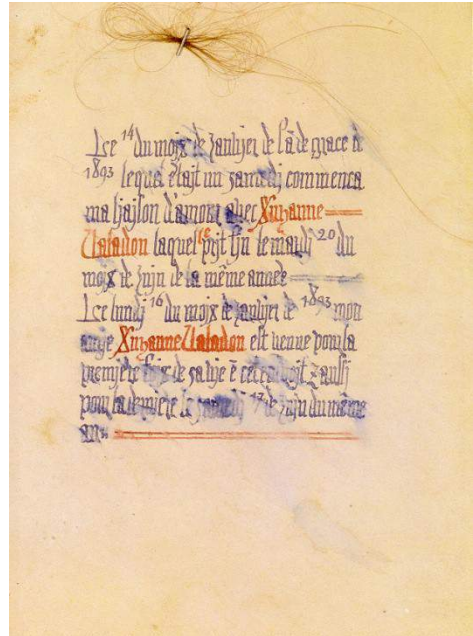 Lce 14 du moix de Janvijer de l'ã de grace de
1893 lequal êtajt un zamedj commenca
ma ljajson d'amour avec Xuzanne
Valadon laquelle prjt fjn le mardj 20 du
mojx de Jujn de la même année
Lce lundj 16 du mojx de Janvijer de 1893 mon
amje Xuzanne Valadon est venue pour la
premjère fojx de sa vje ê cet endrojt & aussj
pour la dernjère le zamedj 17 de Jujn du même